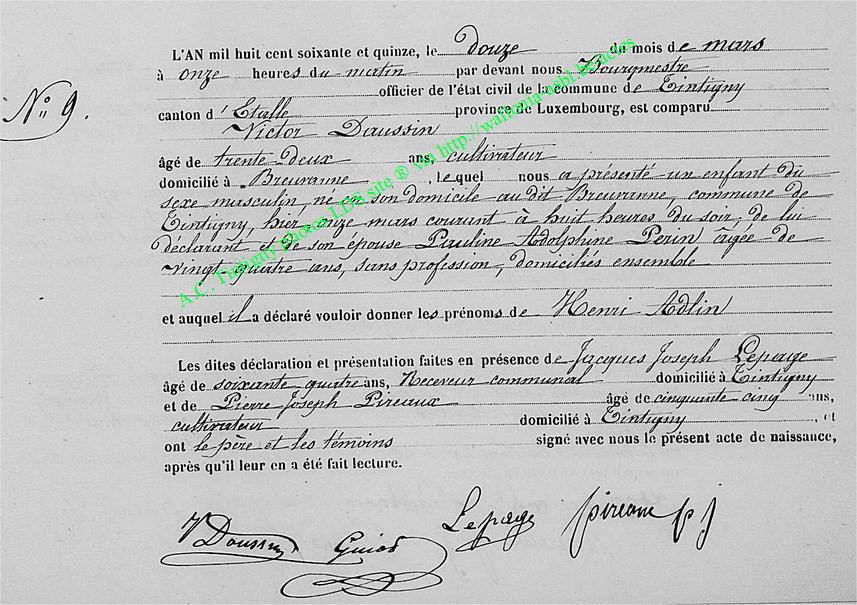 L'AN mil huit cent soixante et quinze, le douze du mois de mars
à onze heures du matin par devant nous Bourgmestre
officier de l'état civil de la commune de Tintigny
N° 9.
canton d'Etalle province de Luxembourg, est comparu
Victor Daussin
âgé de trente deux ans, cultivateur
domicilié à Breuvanne, lequel nous a présenté un enfant du
sexe masculin, né en son domicile au dit Breuvanne, commune de
Tintigny, hier onze mars courant à huit heures du soir, de lui
déclarant et de son épouse Pauline Adolphine Perin âgée de
vingt quatre ans, sans profession, domiciliés ensemble
et auquel il a déclaré vouloir donner les prénoms de Henri Adlin
Les dites déclaration et présentation faites en présence de Jacques Joseph Lepage
âgé de soixante quatre ans, Receveur communal domicilié à Tintigny
et de Pierre Joseph Pireaux âgé de cinquante cinq ans,
cultivateur domicilié à Tintigny, et
ont le père et les témoins signé avec nous le présent acte de naissance,
après qu'il leur en a été fait lecture.
V Daussin Guiot Lepage pireaux p j
A.C. Tintigny photos LDS site ® via http://wallonia-asbl.be/actes